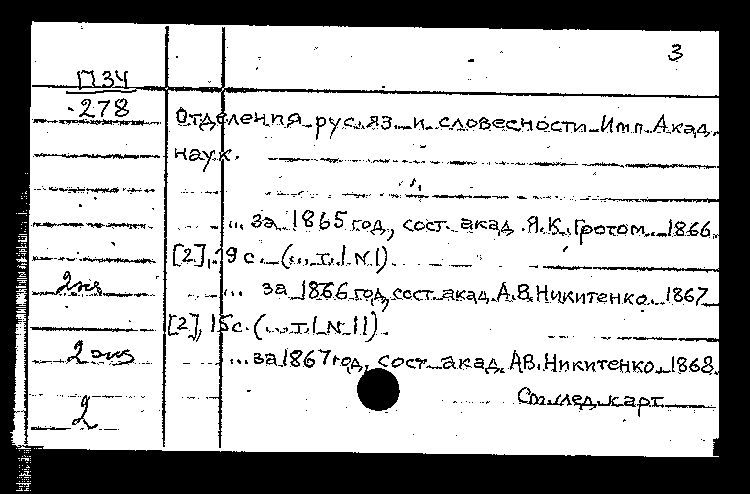 3
П34
278
Отделения рус. яз. и словесности Имп. Акад.
наук.
... за 1865 год, сост. акад. Я.К. Гротом. 1866.
[2], 19 с. (... т. I N I)
2 экз
... за 1866 год, сост. акад. А.В. Никитенко. 1867
[2], 15 с. (... т. I N II).
2 экз
... за 1867 год, сост. акад. А.В. Никитенко. 1868.
См. след. карт.
2